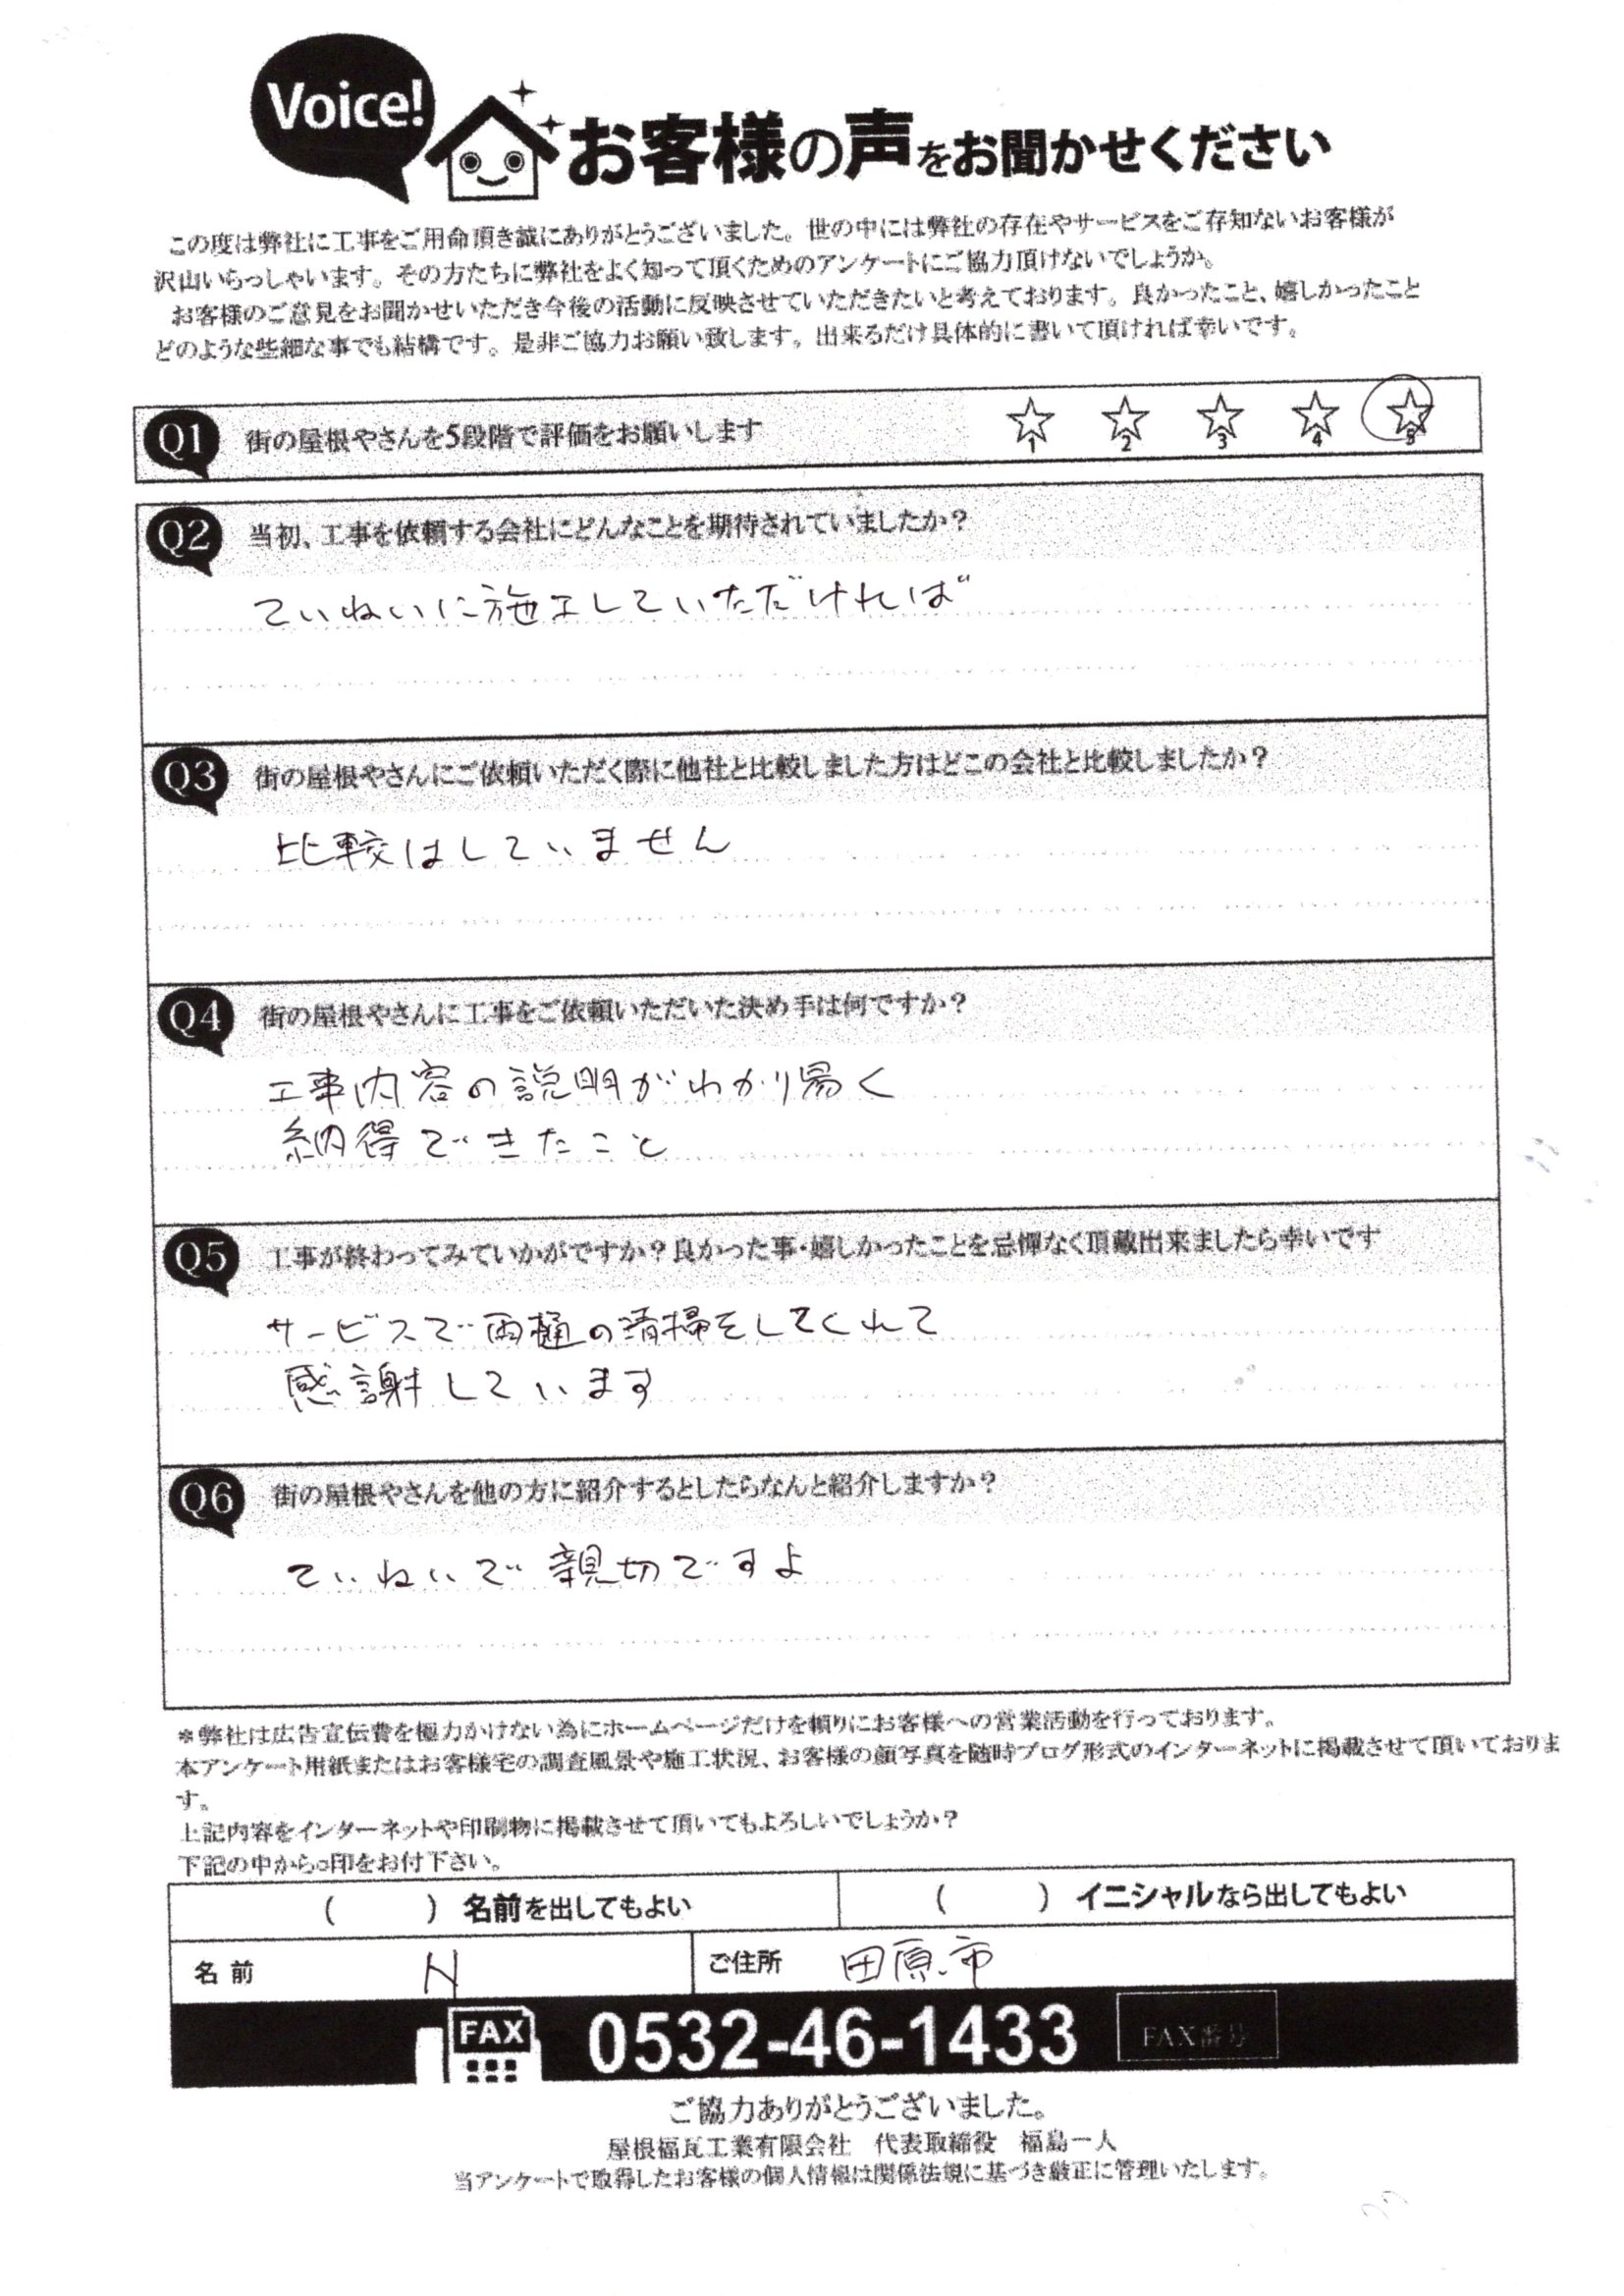 Voice!
お客様の声をお聞かせください
この度は弊社に工事をご用命頂き誠にありがとうございました。世の中には弊社の存在やサービスをご存知ないお客様が
沢山いらっしゃいます。その方たちに弊社をよく知って頂くためのアンケートにご協力頂けないでしょうか。
お客様のご意見をお聞かせいただき今後の活動に反映させていただきたいと考えております。良かったこと、嬉しかったこと
どのような些細な事でも結構です。是非ご協力お願い致します。出来るだけ具体的に書いて頂ければ幸いです。
Q1 街の屋根やさんを5段階で評価をお願いします ☆1 ☆2 ☆3 ☆4 ☆5
Q2 当初、工事を依頼する会社にどんなことを期待されていましたか？
ていねいに施工していただければ
Q3 街の屋根やさんにご依頼いただく際に他社と比較しました方はどこの会社と比較しましたか？
比較はしていません
Q4 街の屋根やさんに工事をご依頼いただいた決め手は何ですか？
工事内容の説明がわかり易く
納得できたこと
Q5 工事が終わってみていかがですか？良かった事・嬉しかったことを忌憚なく頂戴出来ましたら幸いです
サービスで雨樋の清掃をしてくれて
感謝しています
Q6 街の屋根やさんを他の方に紹介するとしたらなんと紹介しますか？
ていねいで親切ですよ
＊弊社は広告宣伝費を極力かけない為にホームページだけを頼りにお客様への営業活動を行っております。
本アンケート用紙またはお客様宅の調査風景や施工状況、お客様の顔写真を随時ブログ形式のインターネットに掲載させて頂いておりま
す。
上記内容をインターネットや印刷物に掲載させて頂いてもよろしいでしょうか？
下記の中から○印をお付下さい。
（　　）名前を出してもよい （　　）イニシャルなら出してもよい
名前 H ご住所 田原市
FAX 0532-46-1433 FAX番号
ご協力ありがとうございました。
屋根福瓦工業有限会社　代表取締役　福島一人
当アンケートで取得したお客様の個人情報は関係法規に基づき厳正に管理いたします。